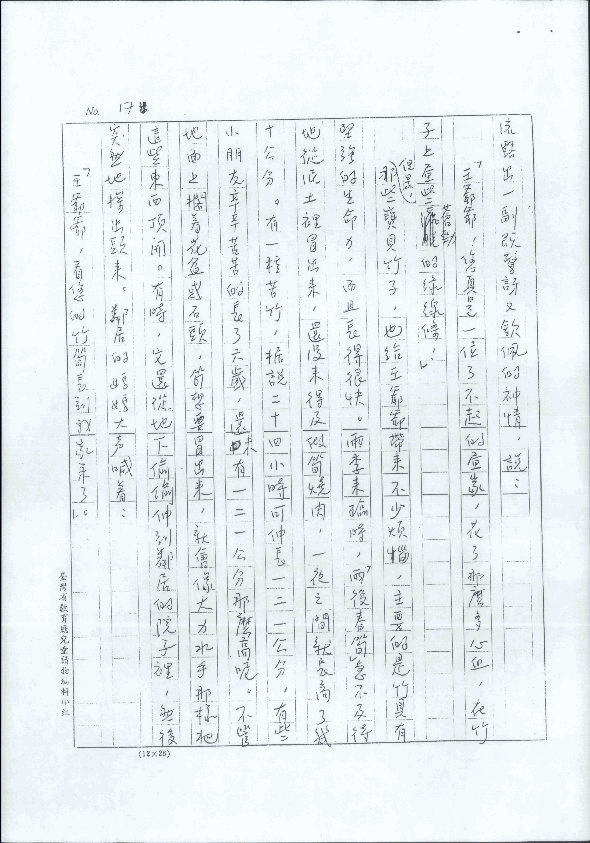 No. 17
流露出一副既驚訝又欽佩的神情，說：
「王爺爺，您真是一位了不起的畫家，花了那麼多心血，在竹
子上畫些蒼勁的綠線條！」
但是，那些寶貝竹子，也給王爺爺帶來不少煩惱，主要的是竹具有
堅強的生命力，而且長得很快。雨季來臨時，「雨後春筍」急不及待
地從泥土裡冒出來，還沒來得及做筍燒肉，一夜之間就長高了幾
十公分。有一種苦竹，據說二十四小時可伸長一二一公分，有些
小朋友辛辛苦苦的長了六歲，還未有一二一公分那麼高呢。不管
地面上擱着花盆或石頭，筍想要冒出來，就會像大力水手那樣把
這些東西頂開。有時，它還從地下偷偷伸到鄰居的院子裡，然後
突然地探出頭來。鄰居的媽媽大聲喊着：
「王爺爺，看您的竹筍長到我家來了！」。
臺灣省教育廳兒童讀物編輯小組
(12×25)